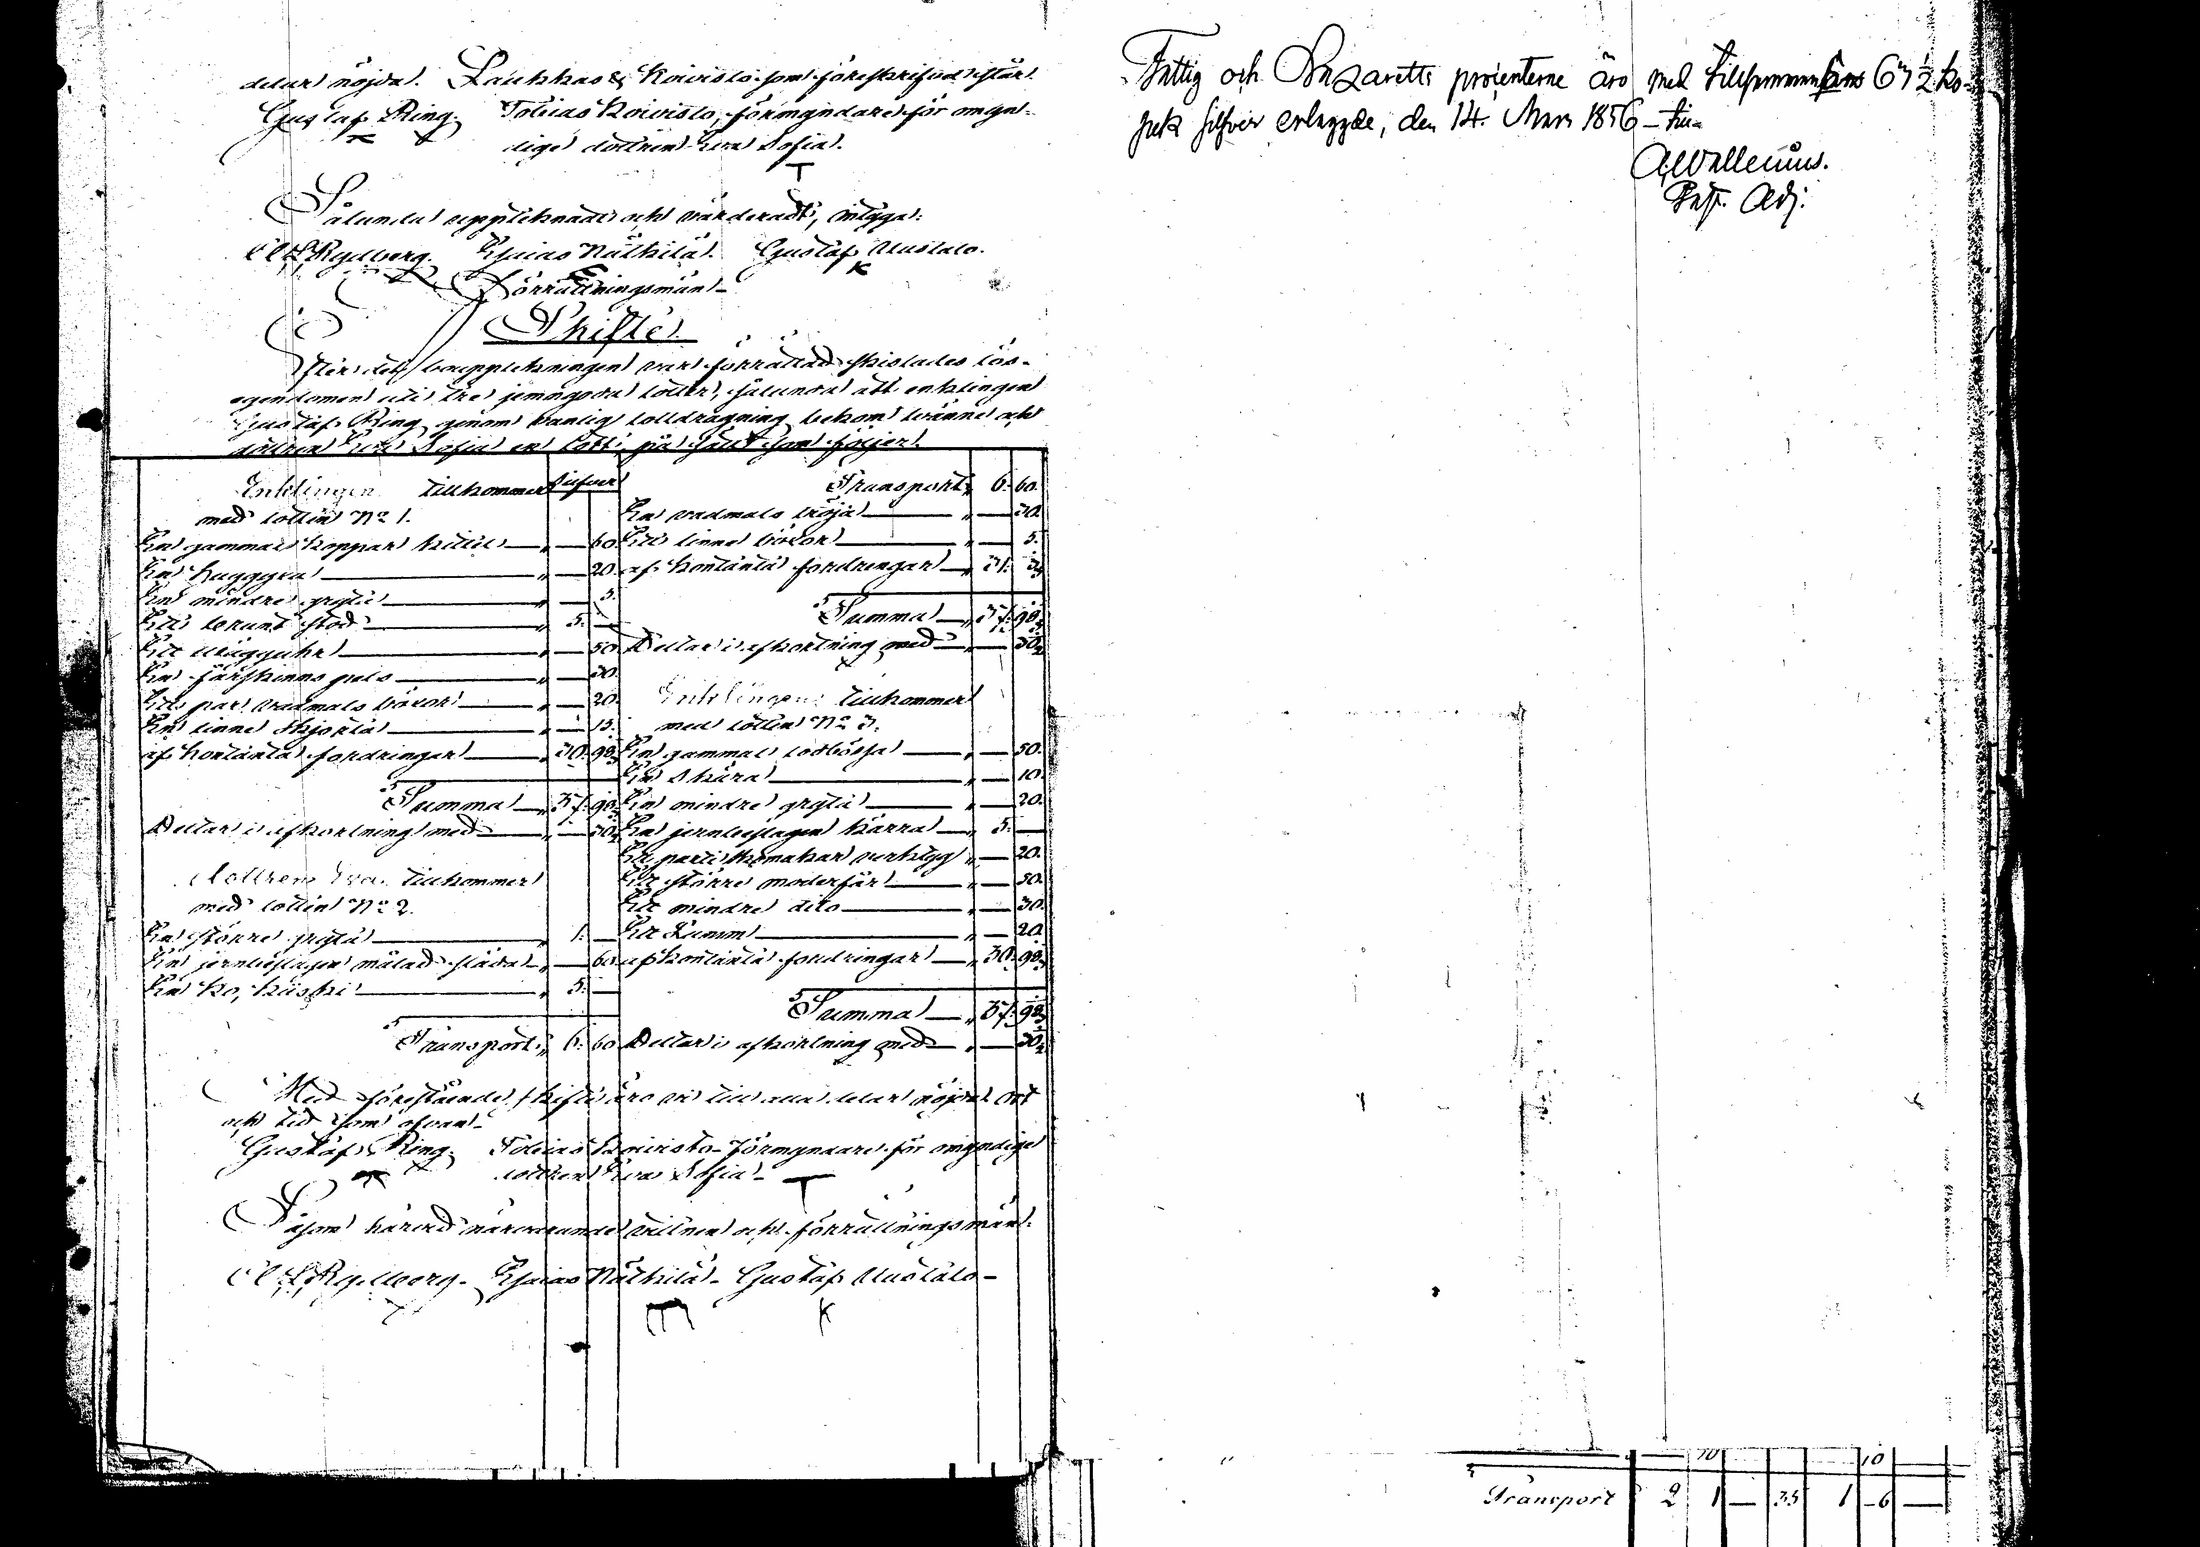 delar nöjda. Laukkas & Koivisto som föreskrifvet står.
Gustaf Ring. Tobias Koivisto, förmyndare för omyn-
diga dottren Eva Sofia.
Sålunda upptecknadt och värderadt, intyga:
Rydberg. Esaias Näthilä. Gustaf Uustalo.
Förrättningsmän
Skifte.
Efter det bouppteckningen var förrättad skiftades lös-
egendomen uti tre jemngoda lotter, sålunda att enklingen
Gustaf Ring genom vanlig lottdragning bekom tvänne och
dottren Eva Sofia en lott på sätt som följer.
Enklingen tillkommer Silfver
med lotten No 1.
En gammal koppar kittel 60
En huggyxa 20.
En mindre gryta 5.
Ett brunt stod 5. —
Ett vägguhr 50
En fårskinns pels 30
Ett par vadmals böxor 20.
En linne skjorta 15.
af kontanta fordringar 30. 98
Summa 37. 98
Dettas i afkortning med 30
Dottren Eva tillkommer
med lotten No 2.
En större gryta 1. —
En jernbeslagen målad släda 60
En ko, Kiiski 5. —
Transport 6. 60
Transport 6. 60.
En vadmals tröja 30.
Ett linne böxor 5.
af kontanta fordringar 31. 3
Summa 37. 98
Dettas i afkortning med 30
Enklingen tillkommer
med lotten No 3.
En gammal lodbössa 50.
En skära 10.
En mindre gryta 20.
En jernbeslagen kärra 5. —
Ett parti skomakar verktyg 20.
Ett större moderfår 50.
Ett mindre dito 30.
Ett Lamm 20
af kontanta fordringar 30. 98
Summa 37. 98
Dettas i afkortning med 30
Med förestående skifte äro vi till alla delar nöjda ort
och tid som ofvan
Gustaf Ring. Tobias Koivisto förmyndare för omyndiga
dottren Eva Sofia
Såsom härvid närvarande vittnen och förrättningsmän.
Rydberg. Esaias Näthilä. Gustaf Uustalo
m K
Fattig och Lazaretts procenterne äro med tillsammans 67 1/2 ko-
pek silfver erlagde, den 14. Mars 1856
A. Wallenius.
Past. Adj.
10 10
Transport 2 1 — 35 1 6 —